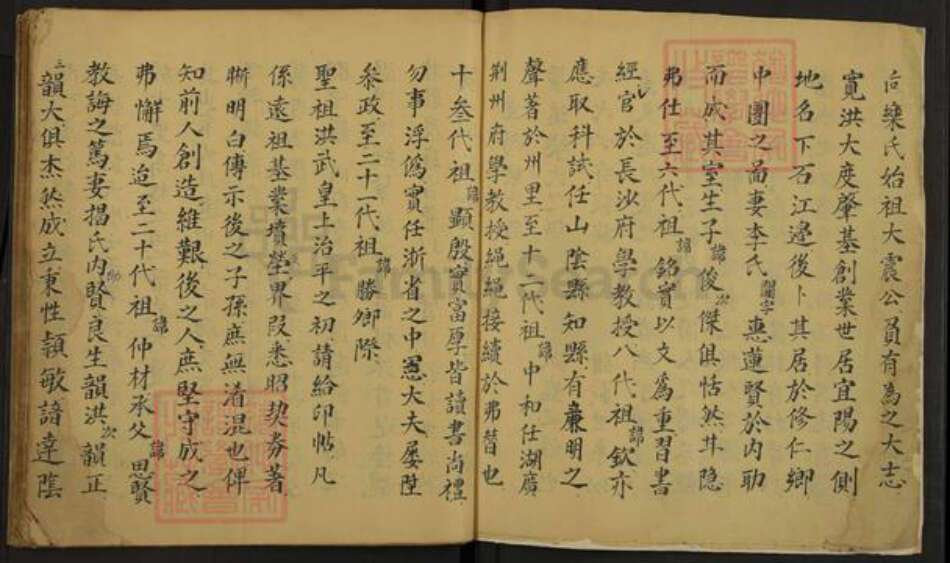 欒氏始祖大震公員有為之大志
寬洪大度肇基創業世居宜陽之側
地名下石江邊後卜其居於修仁鄉
中團之啚妻李氏閨字惠蓮賢於內助
而成其室生子諱俊次傑俱恬然幷隱
弗仕至六代祖諱銘實以文為重習書
經官於長沙府學教授八代祖諱欽亦
應取科試任山陰縣知縣有亷明之
聲著於州里至十二代祖諱中和仕湖廣
荆州府學教授繩繩接續於弗替也
十叁代祖諱顯殷實富厚皆讀書尚禮
勿事浮僞實任浙省之中憲大夫屡陞
叅政至二十一代祖諱勝卿際
聖祖洪武皇上治平之初請給印帖凡
係遠祖基業墳塋界段悉昭契券著
晰明白傳示後之子孫庶無淆混也俾
知前人創造維艱後之人庶堅守成之
弗懈焉迨至二十代祖諱仲材承父諱思賢
教誨之篤妻揭氏內助賢良生韻洪次韻正
三韻大俱杰然成立秉性頴敏諳達陰
FamilySearch